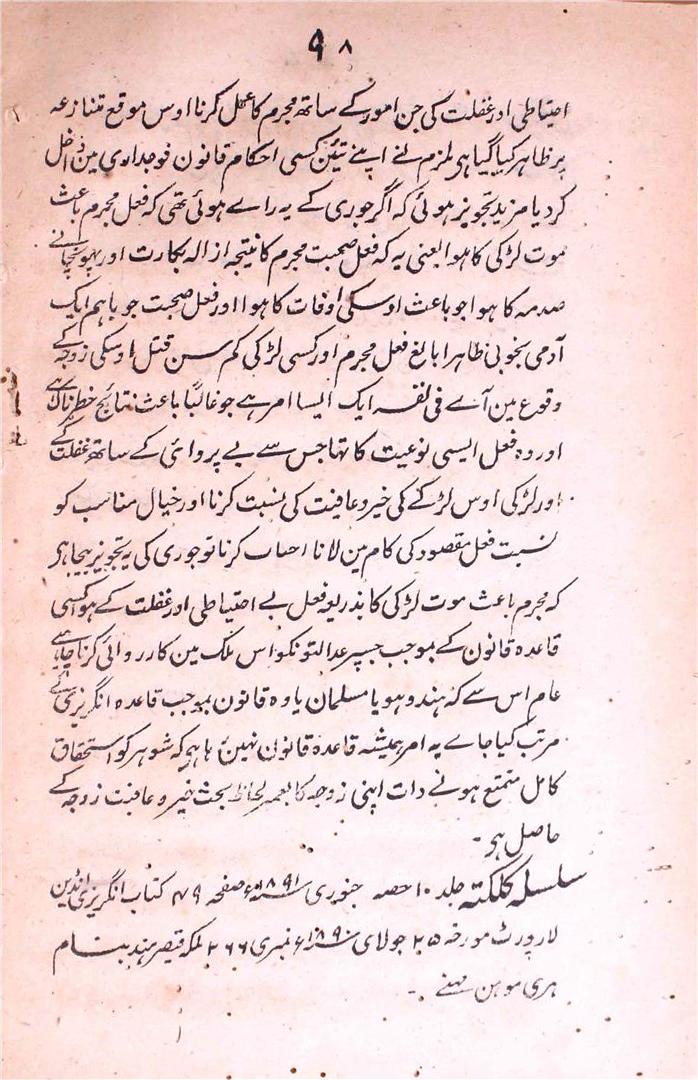 ۹۸
احتیاطی اور غفلت کی جن امور کے ساتھ مجرم کا عمل کرنا اوس موقع تنازعہ
پر ظاہر کیا گیا ہی ملزم نے اپنے تئین کسی احکام قانون فوجداری مین داخل
کر دیا مزید تجویز ہوئی کہ اگر جوری کے یہ راے ہوئی تھی کہ فعل مجرم باعث
موت لڑکی کا ہوا یعنی یہ کہ فعل صحبت مجرم کا نتیجہ ازالہ بکارت اور پہونچانے
صدمہ کا ہوا جو باعث اوسکی وفات کا ہوا اور فعل صحبت جو باہم ایک
آدمی بخوبی ظاہرا بالغ فعل مجرم اور کسی لڑکی کم سن مثل اوسکی زوجہ کے
وقوع مین آے فی نفسہ ایک ایسا امر ہے جو غالباً باعث نتائج خطرناک ہے
اور وہ فعل ایسی نوعیت کا تھا جس سے بے پروائی کے ساتھ غفلت کے
اور لڑکی اوس لڑکے کی خیر و عافیت کی نسبت کرنا اور خیال مناسب کو
نسبت فعل مقصود کی کام مین لانا احساب کرنا تو جوری کی یہ تجویز بیجا ہی
کہ مجرم باعث موت لڑکی کا بذریعہ فعل بے احتیاطی اور غفلت کے ہوا کسی
قاعدہ قانون کے بموجب جسپر عدالتونکو اس ملک مین کارروائی کرنا چاہیے
عام اس سے کہ ہندو ہو یا مسلمان یا وہ قانون بموجب قاعدہ انگریزی کے
مرتب کیا جاے یہ امر ہمیشہ قاعدہ قانون نہین رہا ہے کہ شوہر کو استحقاق
کامل متمتع ہونے ذات اپنی زوجہ کا بغیر لحاظ بحث خیر و عافیت زوجہ کے
حاصل ہی ۔
سلسلہ کلکتہ جلد ۱۰ حصہ جنوری سنہ ۱۸۹۱ء صفحہ ۴۹ کتاب انگریزی انڈین
لا رپورٹ مورخہ ۲۵ جولای سنہ ۱۸۹۰ء نمبری ۲۶۶ ملکہ قیصر ہند بنام
ہری موہن ۔